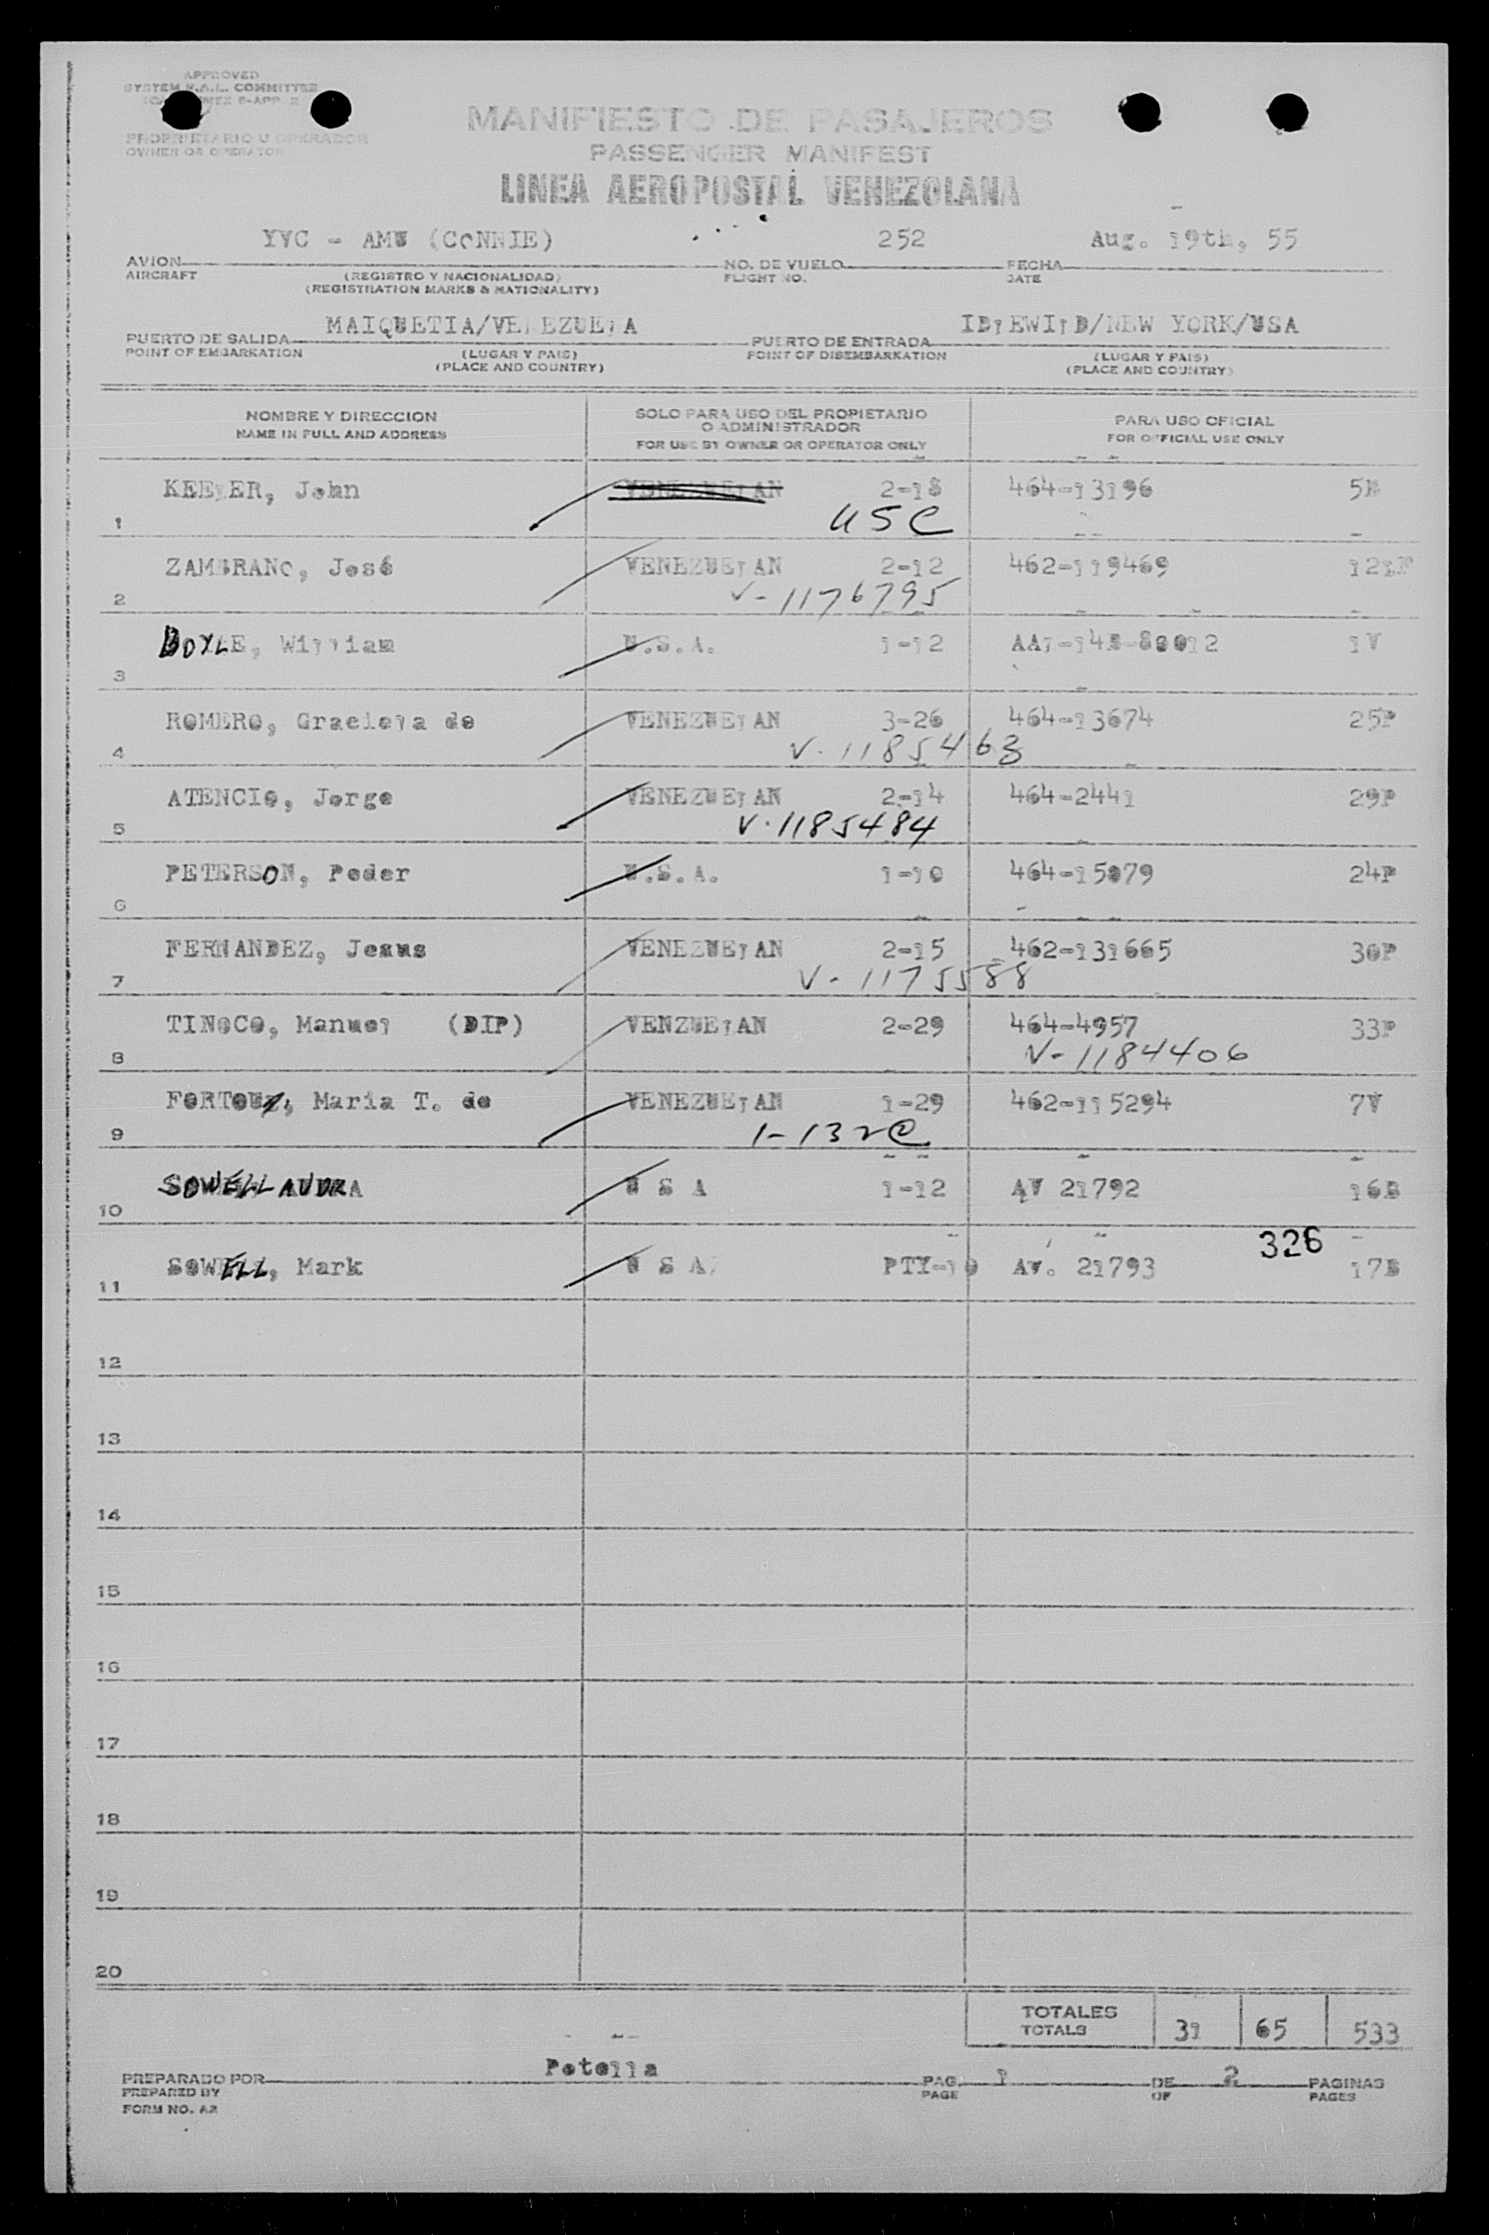 APPROVED
SYSTEM F.A.L. COMMITTEE
PROPRIETARIO U OPERADOR
OWNER OR OPERATOR
MANIFIESTO DE PASAJEROS
PASSENGER MANIFEST
LINEA AEROPOSTAL VENEZOLANA
YVC - AMU (CONNIE) 252 Aug. 19th, 55
AVION NO. DE VUELO FECHA
AIRCRAFT (REGISTRO Y NACIONALIDAD) FLIGHT NO. DATE
(REGISTRATION MARKS & NATIONALITY)
MAIQUETIA/VENEZUELA IDLEWILD/NEW YORK/USA
PUERTO DE SALIDA PUERTO DE ENTRADA
POINT OF EMBARKATION (LUGAR Y PAIS) POINT OF DISEMBARKATION (LUGAR Y PAIS)
(PLACE AND COUNTRY) (PLACE AND COUNTRY)
NOMBRE Y DIRECCION SOLO PARA USO DEL PROPIETARIO PARA USO OFICIAL
NAME IN FULL AND ADDRESS O ADMINISTRADOR FOR OFFICIAL USE ONLY
FOR USE BY OWNER OR OPERATOR ONLY
KEELER, John VENEZUELAN 2-18 464-13196
1 USC
ZAMBRANO, José VENEZUELAN 2-12 462-119469
2 V-1176795
BOYLE, William U.S.A. 1-12 1V
3
ROMERO, Graciela de VENEZUELAN 3-26 464-13674 25P
4 V-1185463
ATENCIO, Jorge VENEZUELAN 2-14 464-2441 29P
5 V-1185484
PETERSON, Peder U.S.A. 1-10 464-15079 24P
6
FERNANDEZ, Jesus VENEZUELAN 2-15 462-131665 30P
7 V-1175588
TINOCO, Manuel (DIP) VENZUELAN 2-29 464-4957 33P
8 V-1184406
FORTOUL, Maria T. de VENEZUELAN 1-29 462-115294 7V
9 1-132@
SOWELL AUDRA U S A 1-12 AV 21792 16B
10
326
SOWELL, Mark U S A PTY-10 AV. 21793 17B
11
12
13
14
15
16
17
18
19
20
TOTALES
TOTALS 31 65 533
Petella
PREPARADO POR PAG. 1 DE 2 PAGINAS
PREPARED BY PAGE OF PAGES
FORM NO. A2